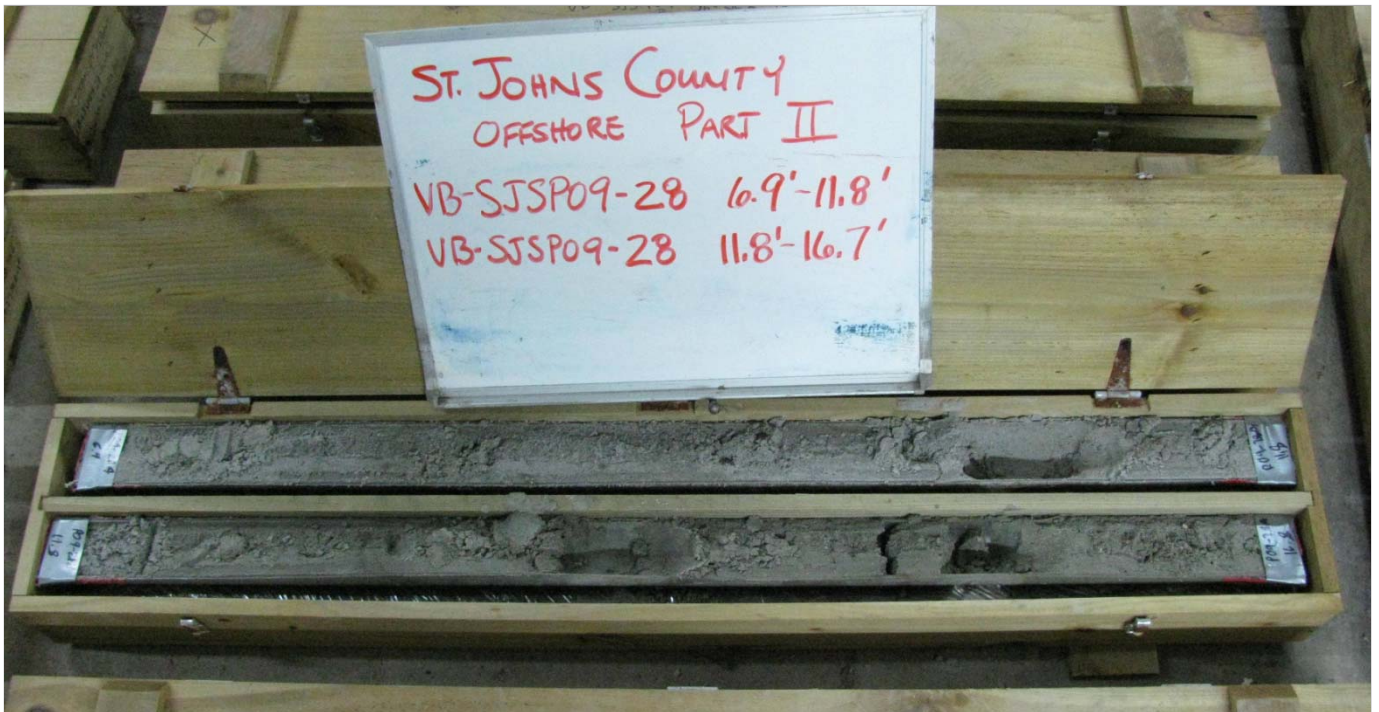 ST. JOHNS COUNTY
OFFSHORE PART II
VB-SJSP09-28 6.9'-11.8'
VB-SJSP09-28 11.8'-16.7'
6.9
11.8
11.8